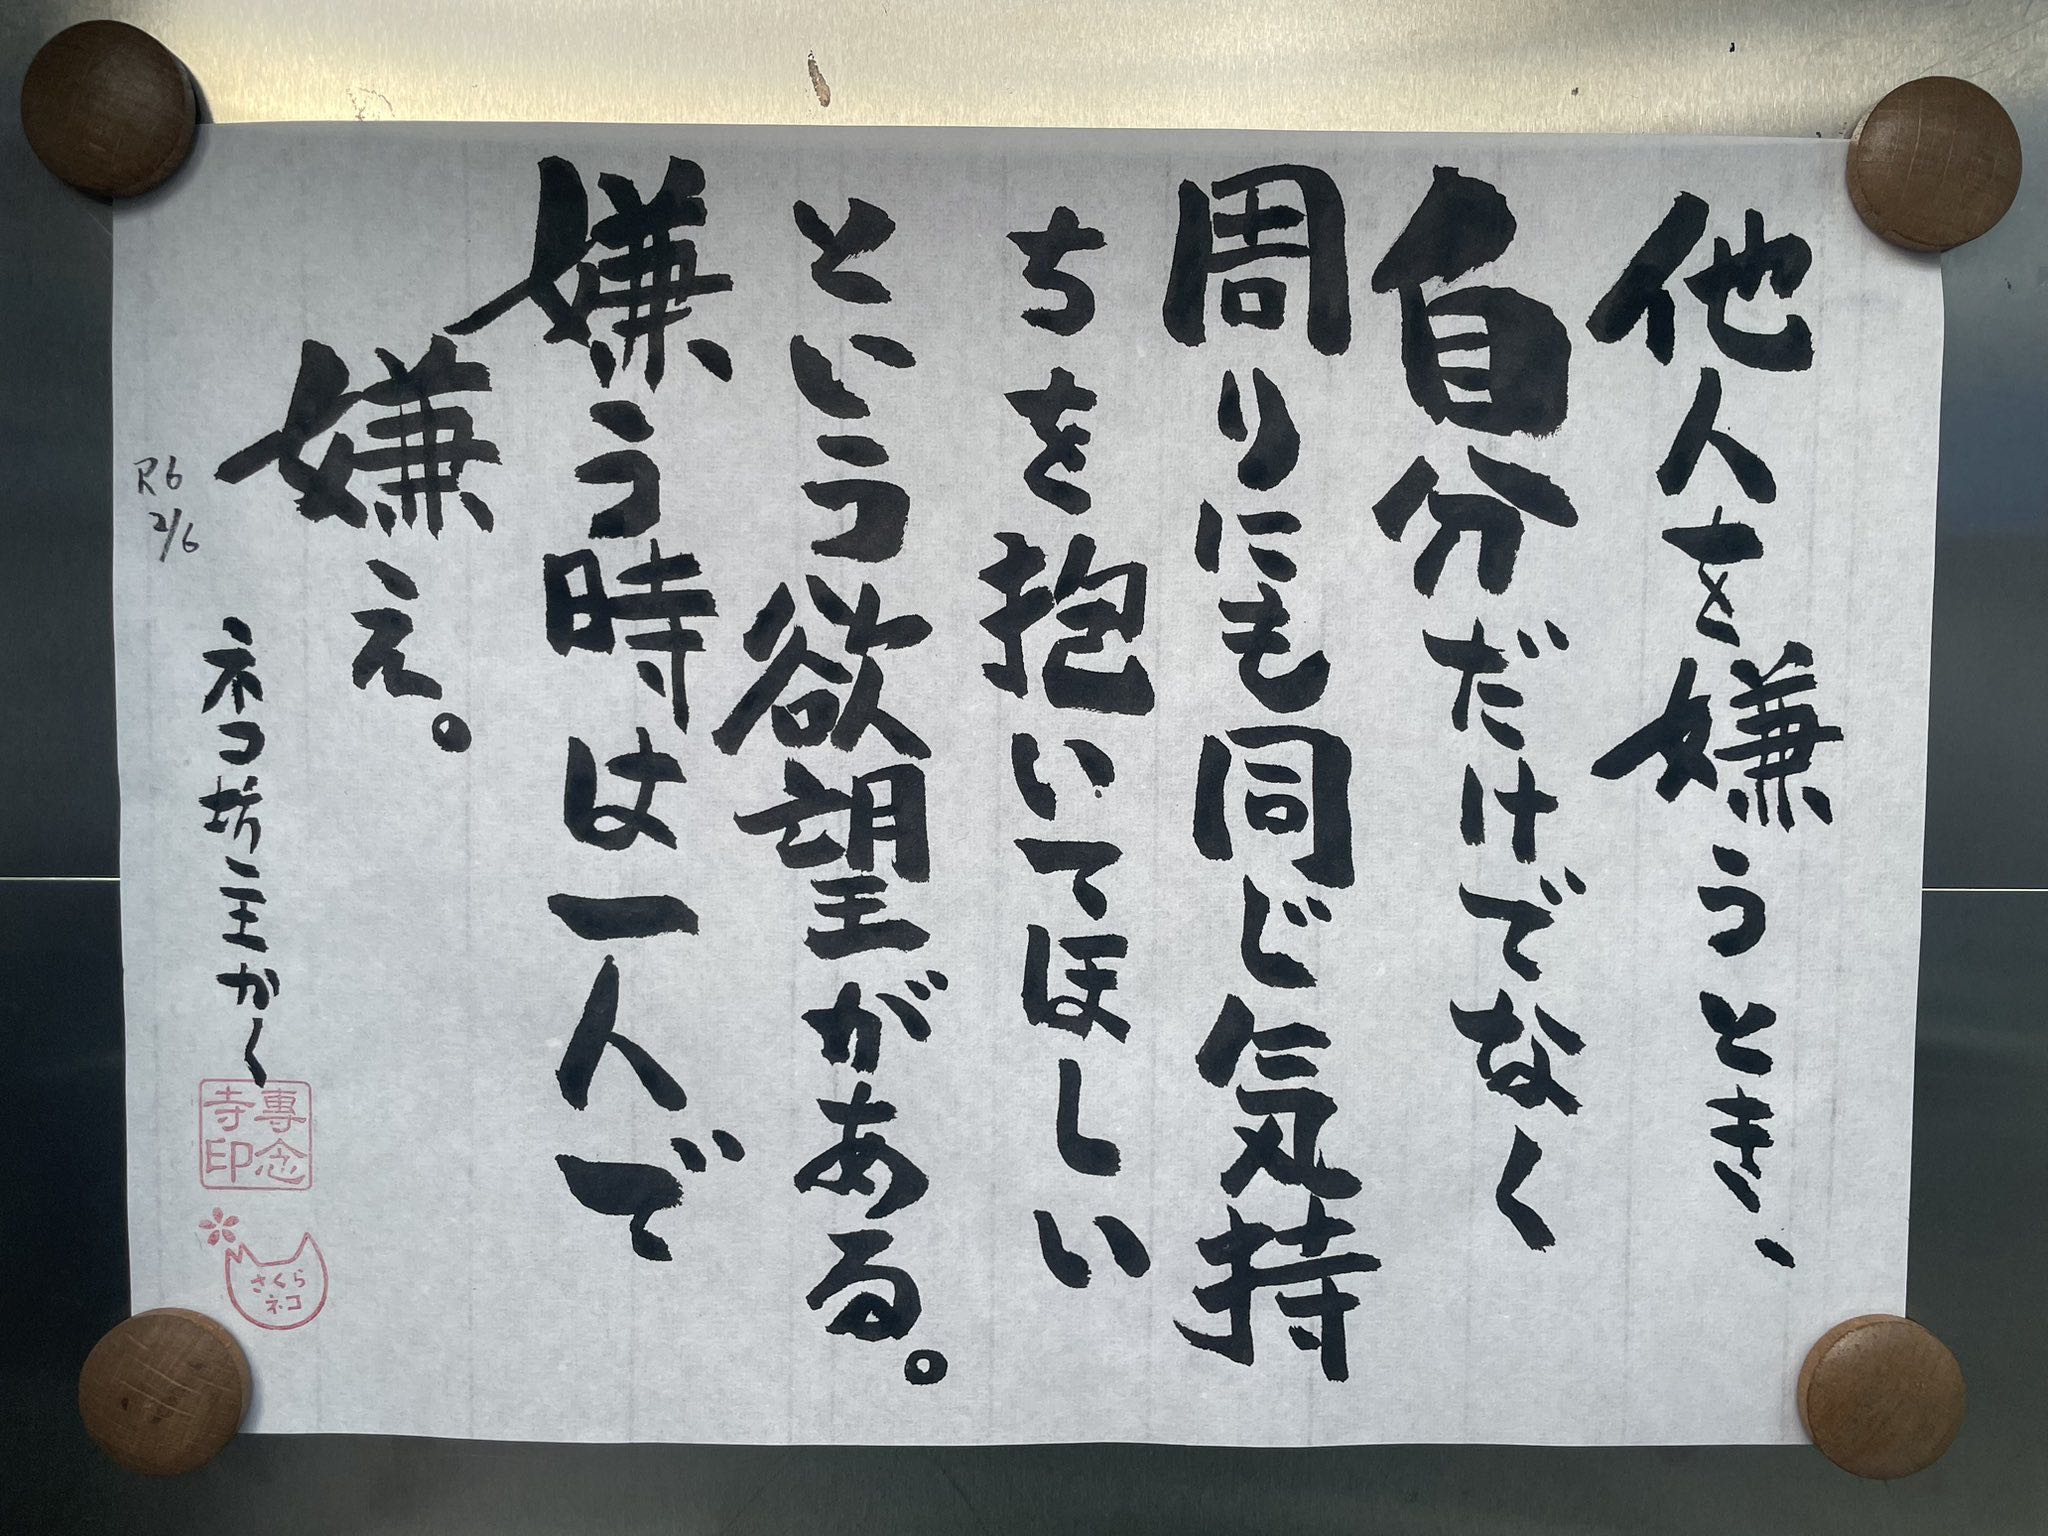 他人を嫌うとき、
自分だけでなく
周りにも同じ気持
ちを抱いてほしい
という欲望がある。
嫌う時は一人で
嫌え。
R6
2/6
ネコ坊主かく
專念
寺印
さくら
ネコ